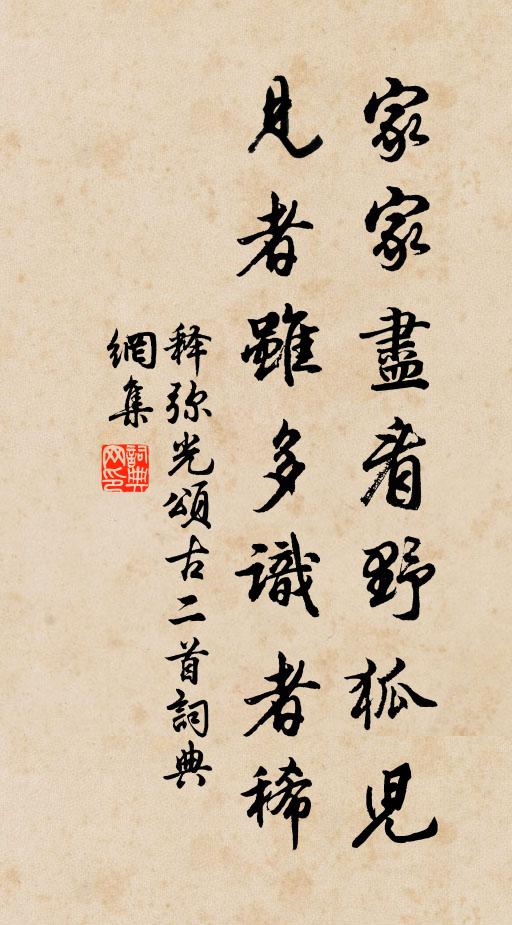 家家盡看野狐児
見者雖多識者稀
释弥光頌古二首詞典
網集
詞典网印